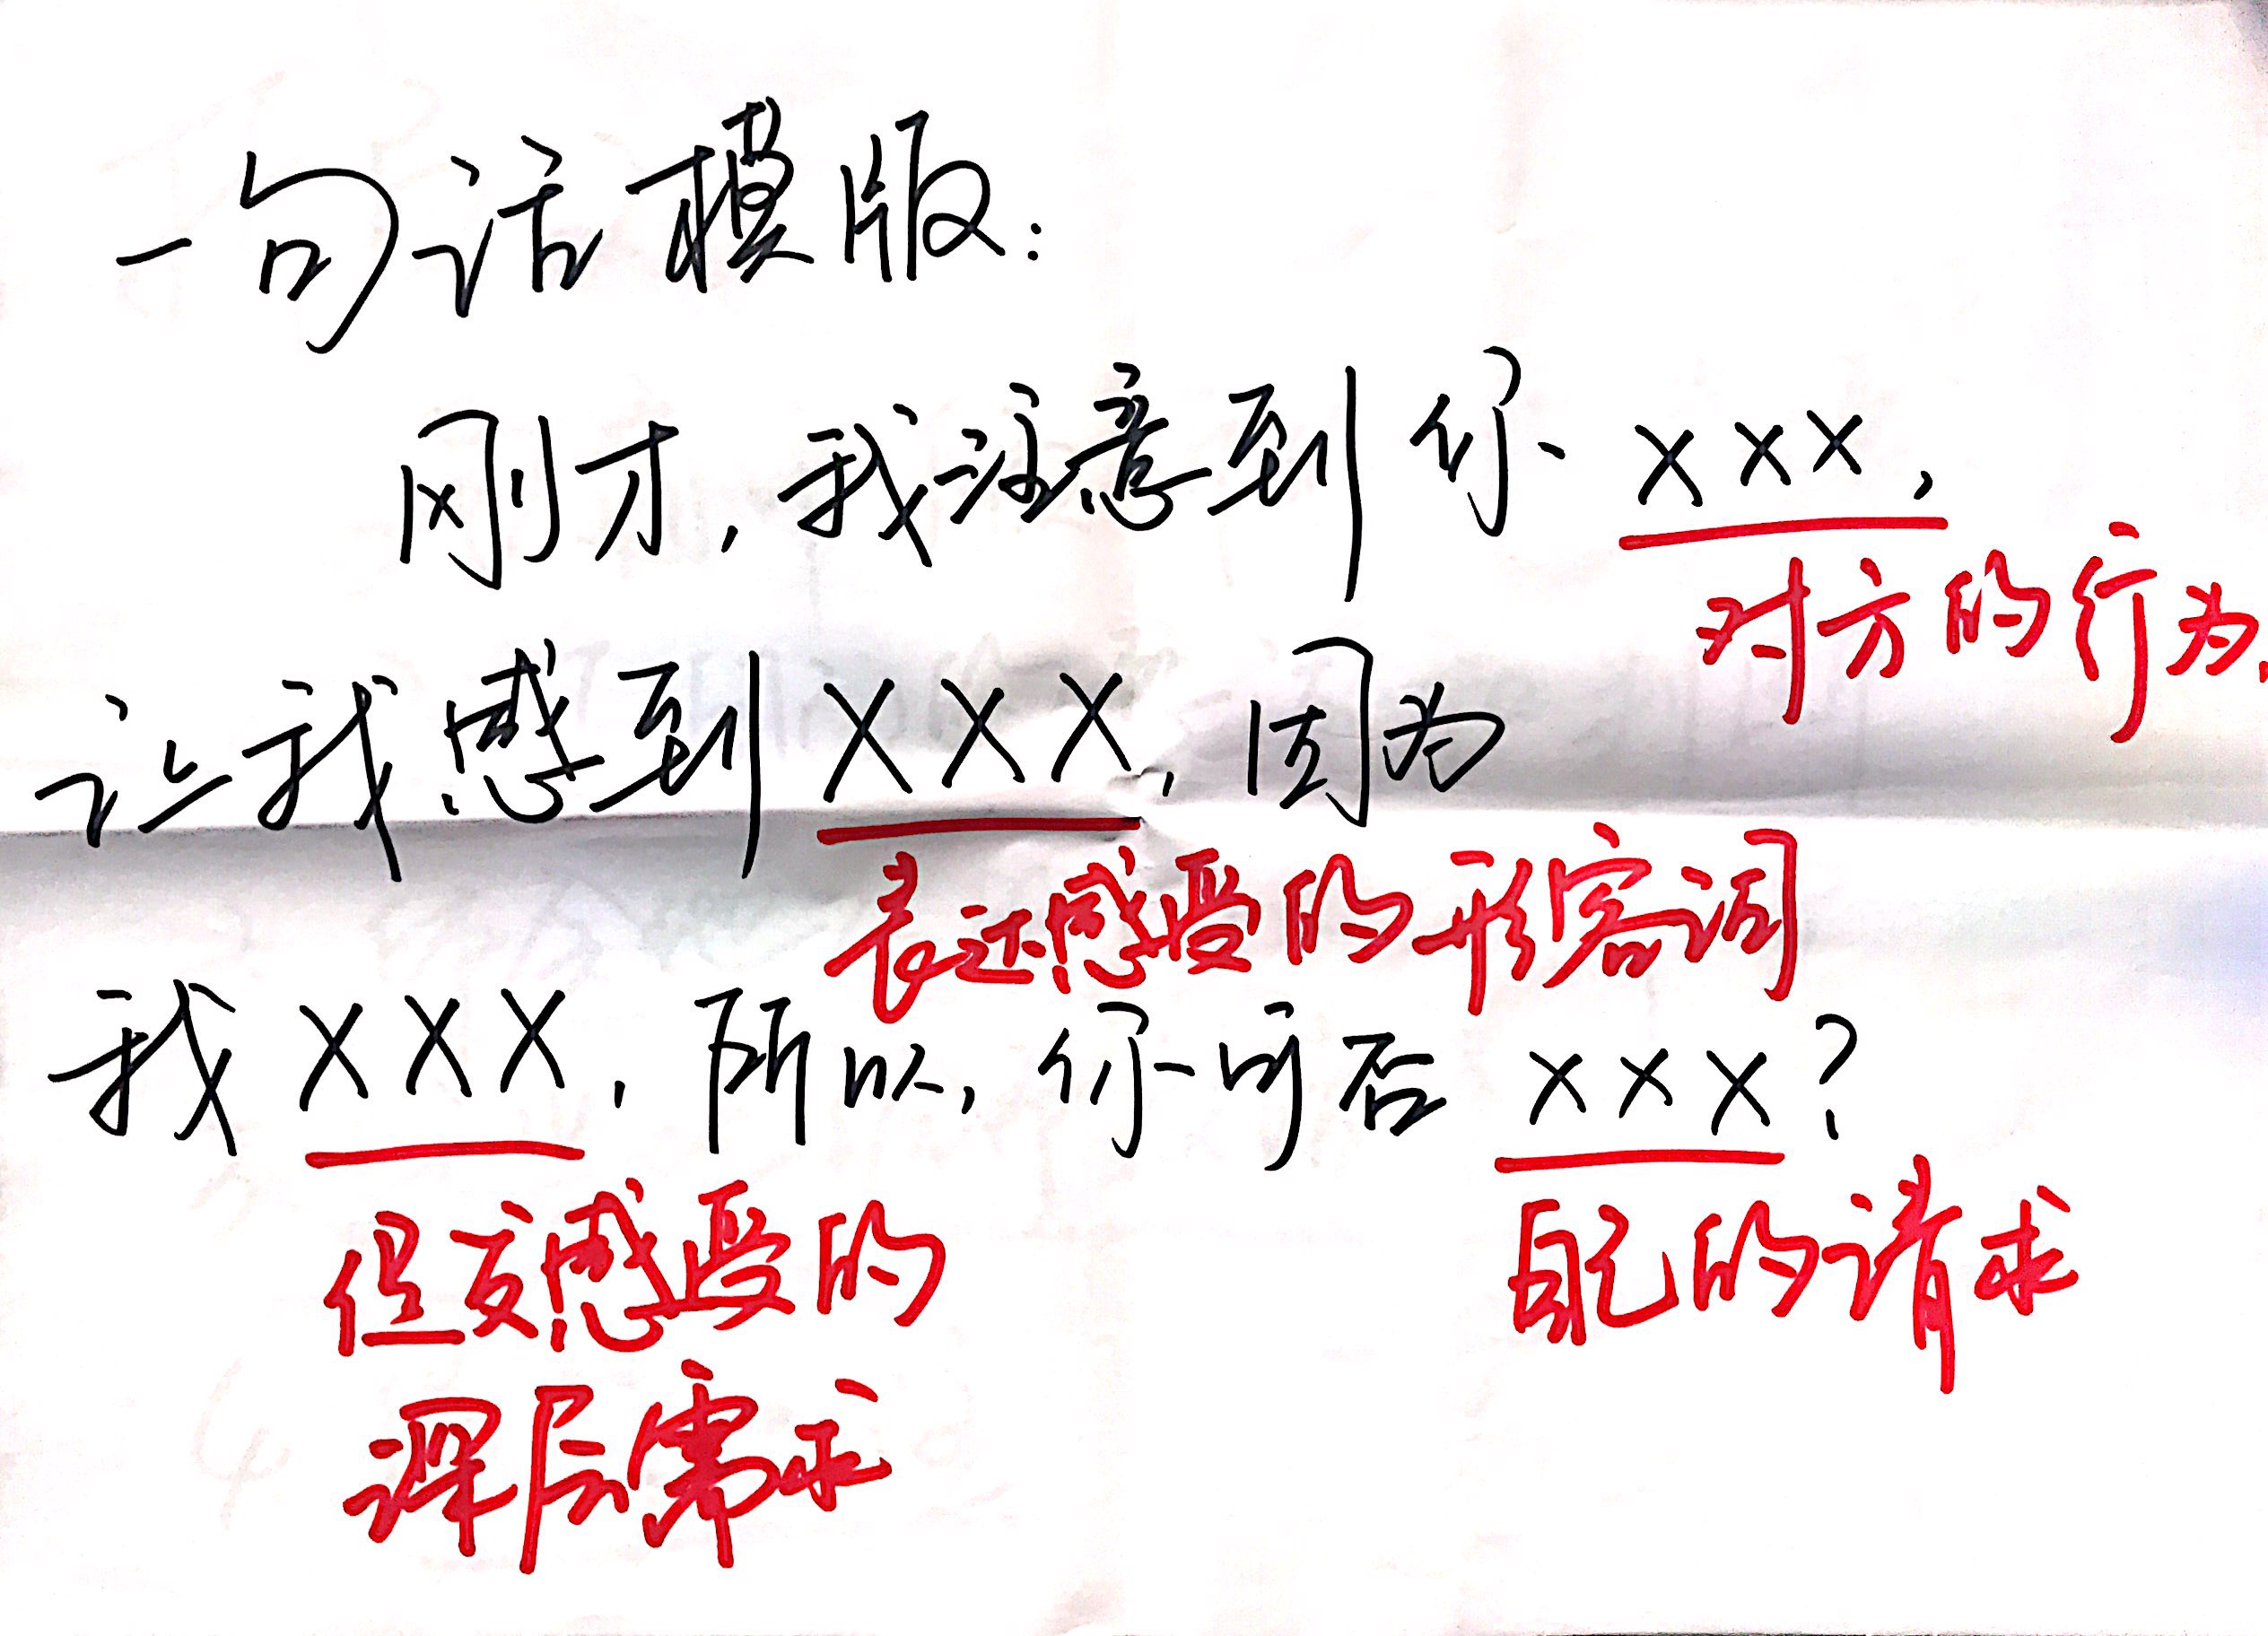 一句话模版：
刚才，我注意到你 XXX，
对方的行为
让我感到 XXX，因为
表达感受的形容词
我 XXX，所以，你可否 XXX？
但反感受的
自己的请求
深层需求